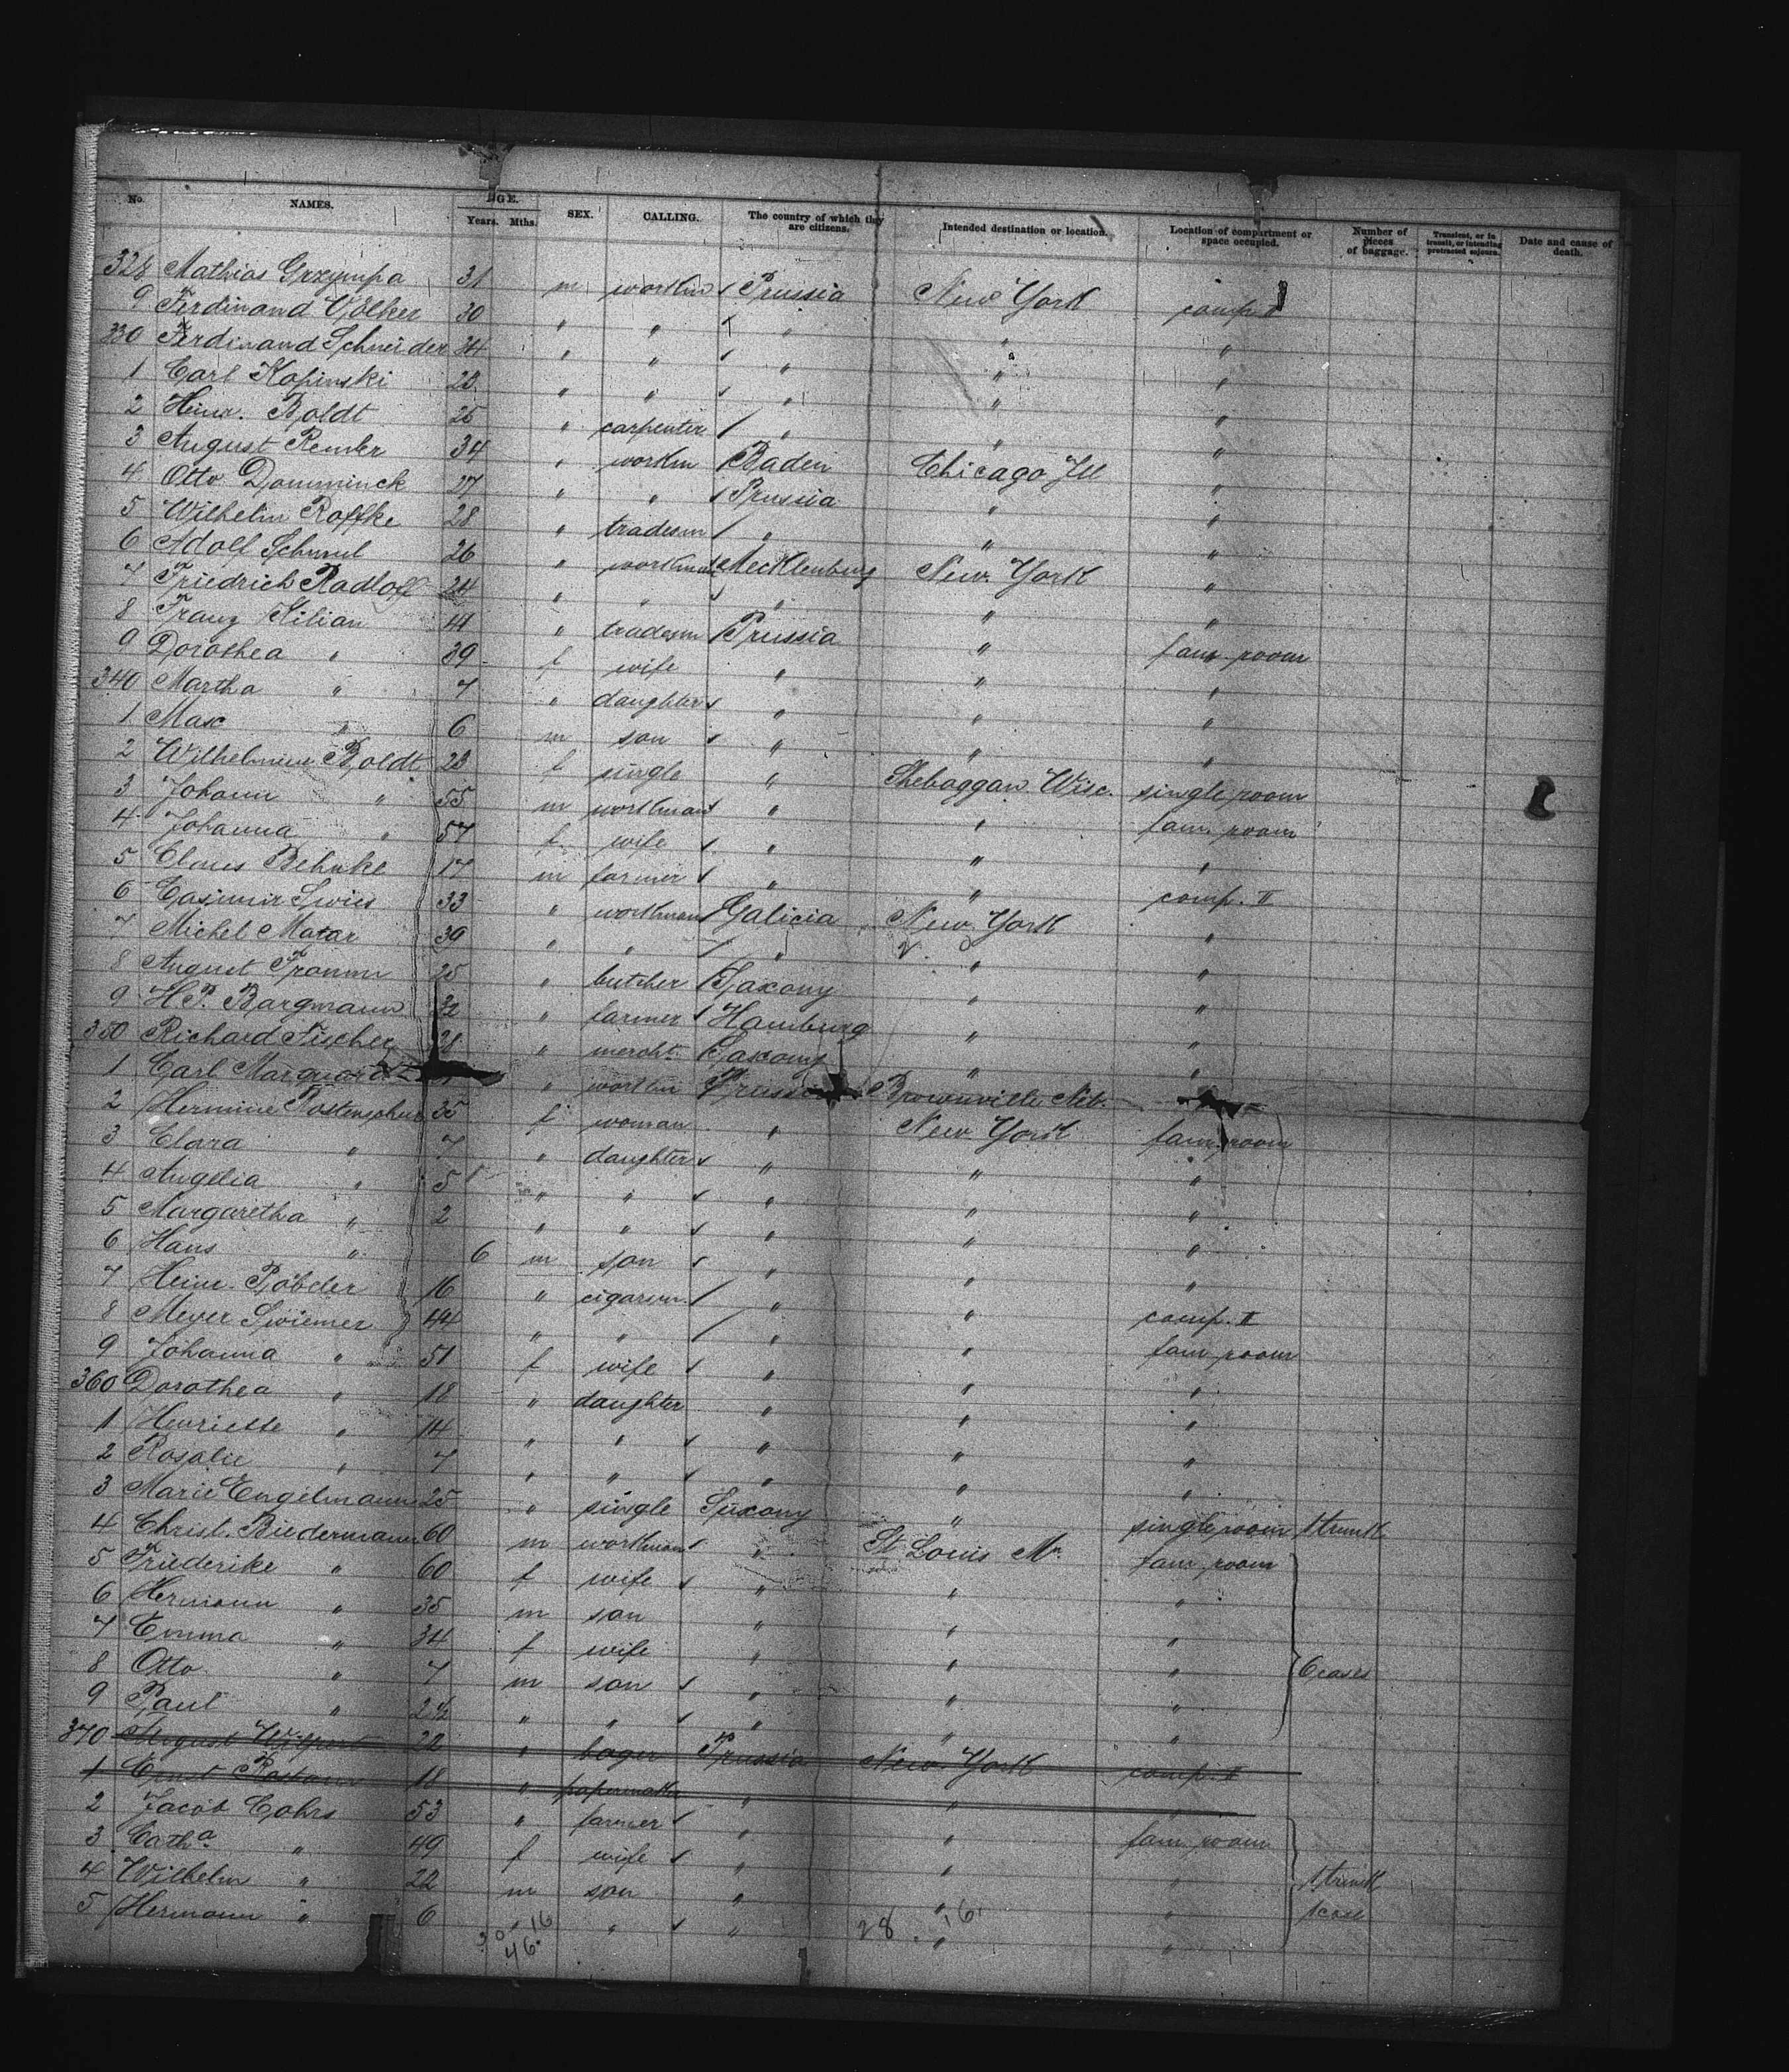 No. NAMES. AGE. Years. Mths. SEX. CALLING. The country of which they are citizens. Intended destination or location. Location of compartment or space occupied. Number of pieces of baggage. Transient, or in transit, or intending protracted sojourn. Date and cause of death.
328 Mathias Grzympa 31 m workm Prussia New York comp. II
9 Ferdinand Völker 30 " " " " "
330 Ferdinand Schneider 34 " " " " "
1 Carl Kopinski 28 " " " " "
2 Heinr. Boldt 25 " carpenter " " "
3 August Remler 34 " workm Baden Chicago Ill "
4 Otto Domminck 27 " " Prussia " "
5 Wilhelm Roffke 28 " tradesm " " "
6 Adolf 26 " workman Mecklenburg New York "
7 Friedrich Radloff 24 " " " " "
8 Franz Kilian 41 " tradesm Prussia " fam. room
9 Dorothea " 39 f wife " " "
340 Martha " 7 " daughter " " "
1 Max " 6 m son " " "
2 Wilhelmine Boldt 23 f single " Sheboggan Wisc. single room
3 Johann " 55 m workman " " fam. room
4 Johanna " 57 f wife " " "
5 Claus Behnke 17 m farmer " " comp. II
6 Casimir 33 " workman Galicia New York "
7 Michel Matar 39 " " " " "
8 August 25 " butcher Saxony " "
9 H.P. Bargmann 32 " farmer Hamburg " "
350 Richard Fischer 28 " mercht. Saxony " "
1 Carl Marquardt " workm Prussia Brownville Neb.
2 Hermine 35 f woman " New York fam. room
3 Clara " 7 " daughter " " "
4 Angelia " 5 " " " " "
5 Margaretha " 2 " " " " "
6 Hans " 6 m son " " "
7 Heinr. 16 " cigarm. " " comp. II
8 Meyer 44 " " " " fam. room
9 Johanna " 51 f wife " " "
360 Dorothea " 18 " daughter " " "
1 Henriette " 14 " " " " "
2 Rosalie " 7 " " " " "
3 Marie Engelmann 25 " single Saxony " single room 1 trunk
4 Christ. Biedermann 60 m workman " St Louis Mo. fam. room
5 Friederike " 60 f wife " " "
6 Hermann " 35 m son " " "
7 Emma " 34 f wife " " "
8 Otto " 7 m son " " " 6 cases
9 Paul " 2½ " " " " "
370 August 22 " Prussia New York comp. II
1 Ernst 18 " papermaker " " "
2 Jacob Cohrs 53 " farmer " " fam. room
3 Catha " 49 f wife " " "
4 Wilhelm " 22 m son " " " 1 trunk
5 Hermann " 6 " " " " " 1 case
30 16 28 16
46